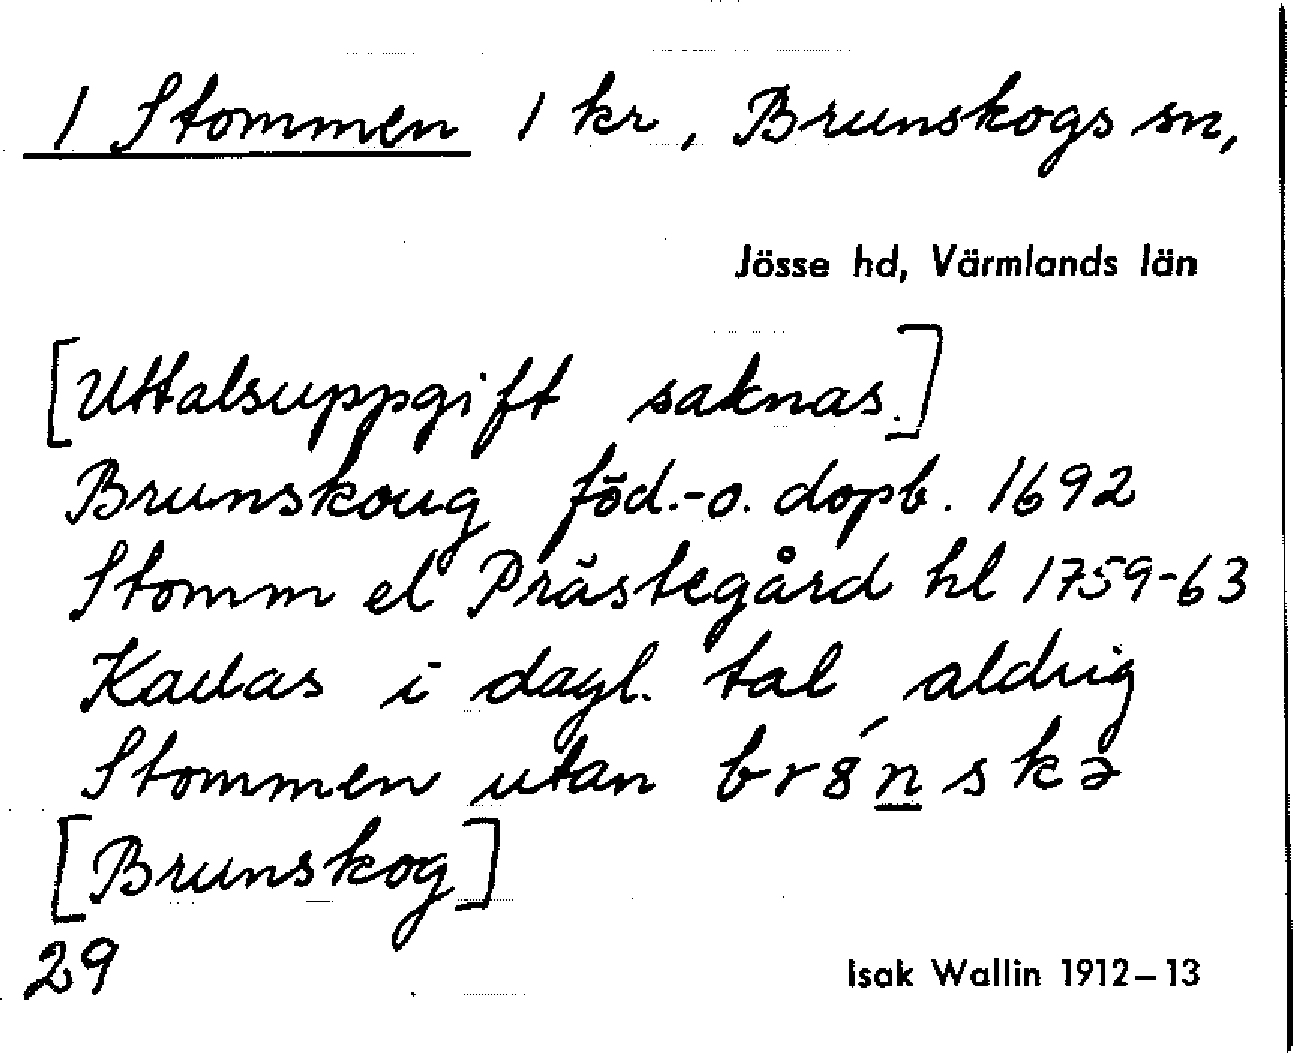 1 Stommen 1 kr, Brunskogs sn,
Jösse hd, Värmlands län
[Uttalsuppgift saknas.]
Brunskoug föd.-o. dopb. 1692
Stomm el Prästegård hl 1759-63
Kallas i dagl. tal aldrig
Stommen utan br8́n̲skə
[Brunskog]
29
Isak Wallin 1912–13